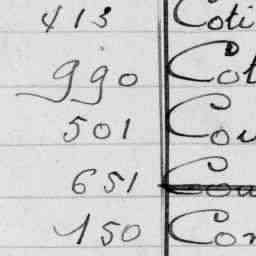 413 Coti
990 Cot
501 Cou
651 Cou
150 Con